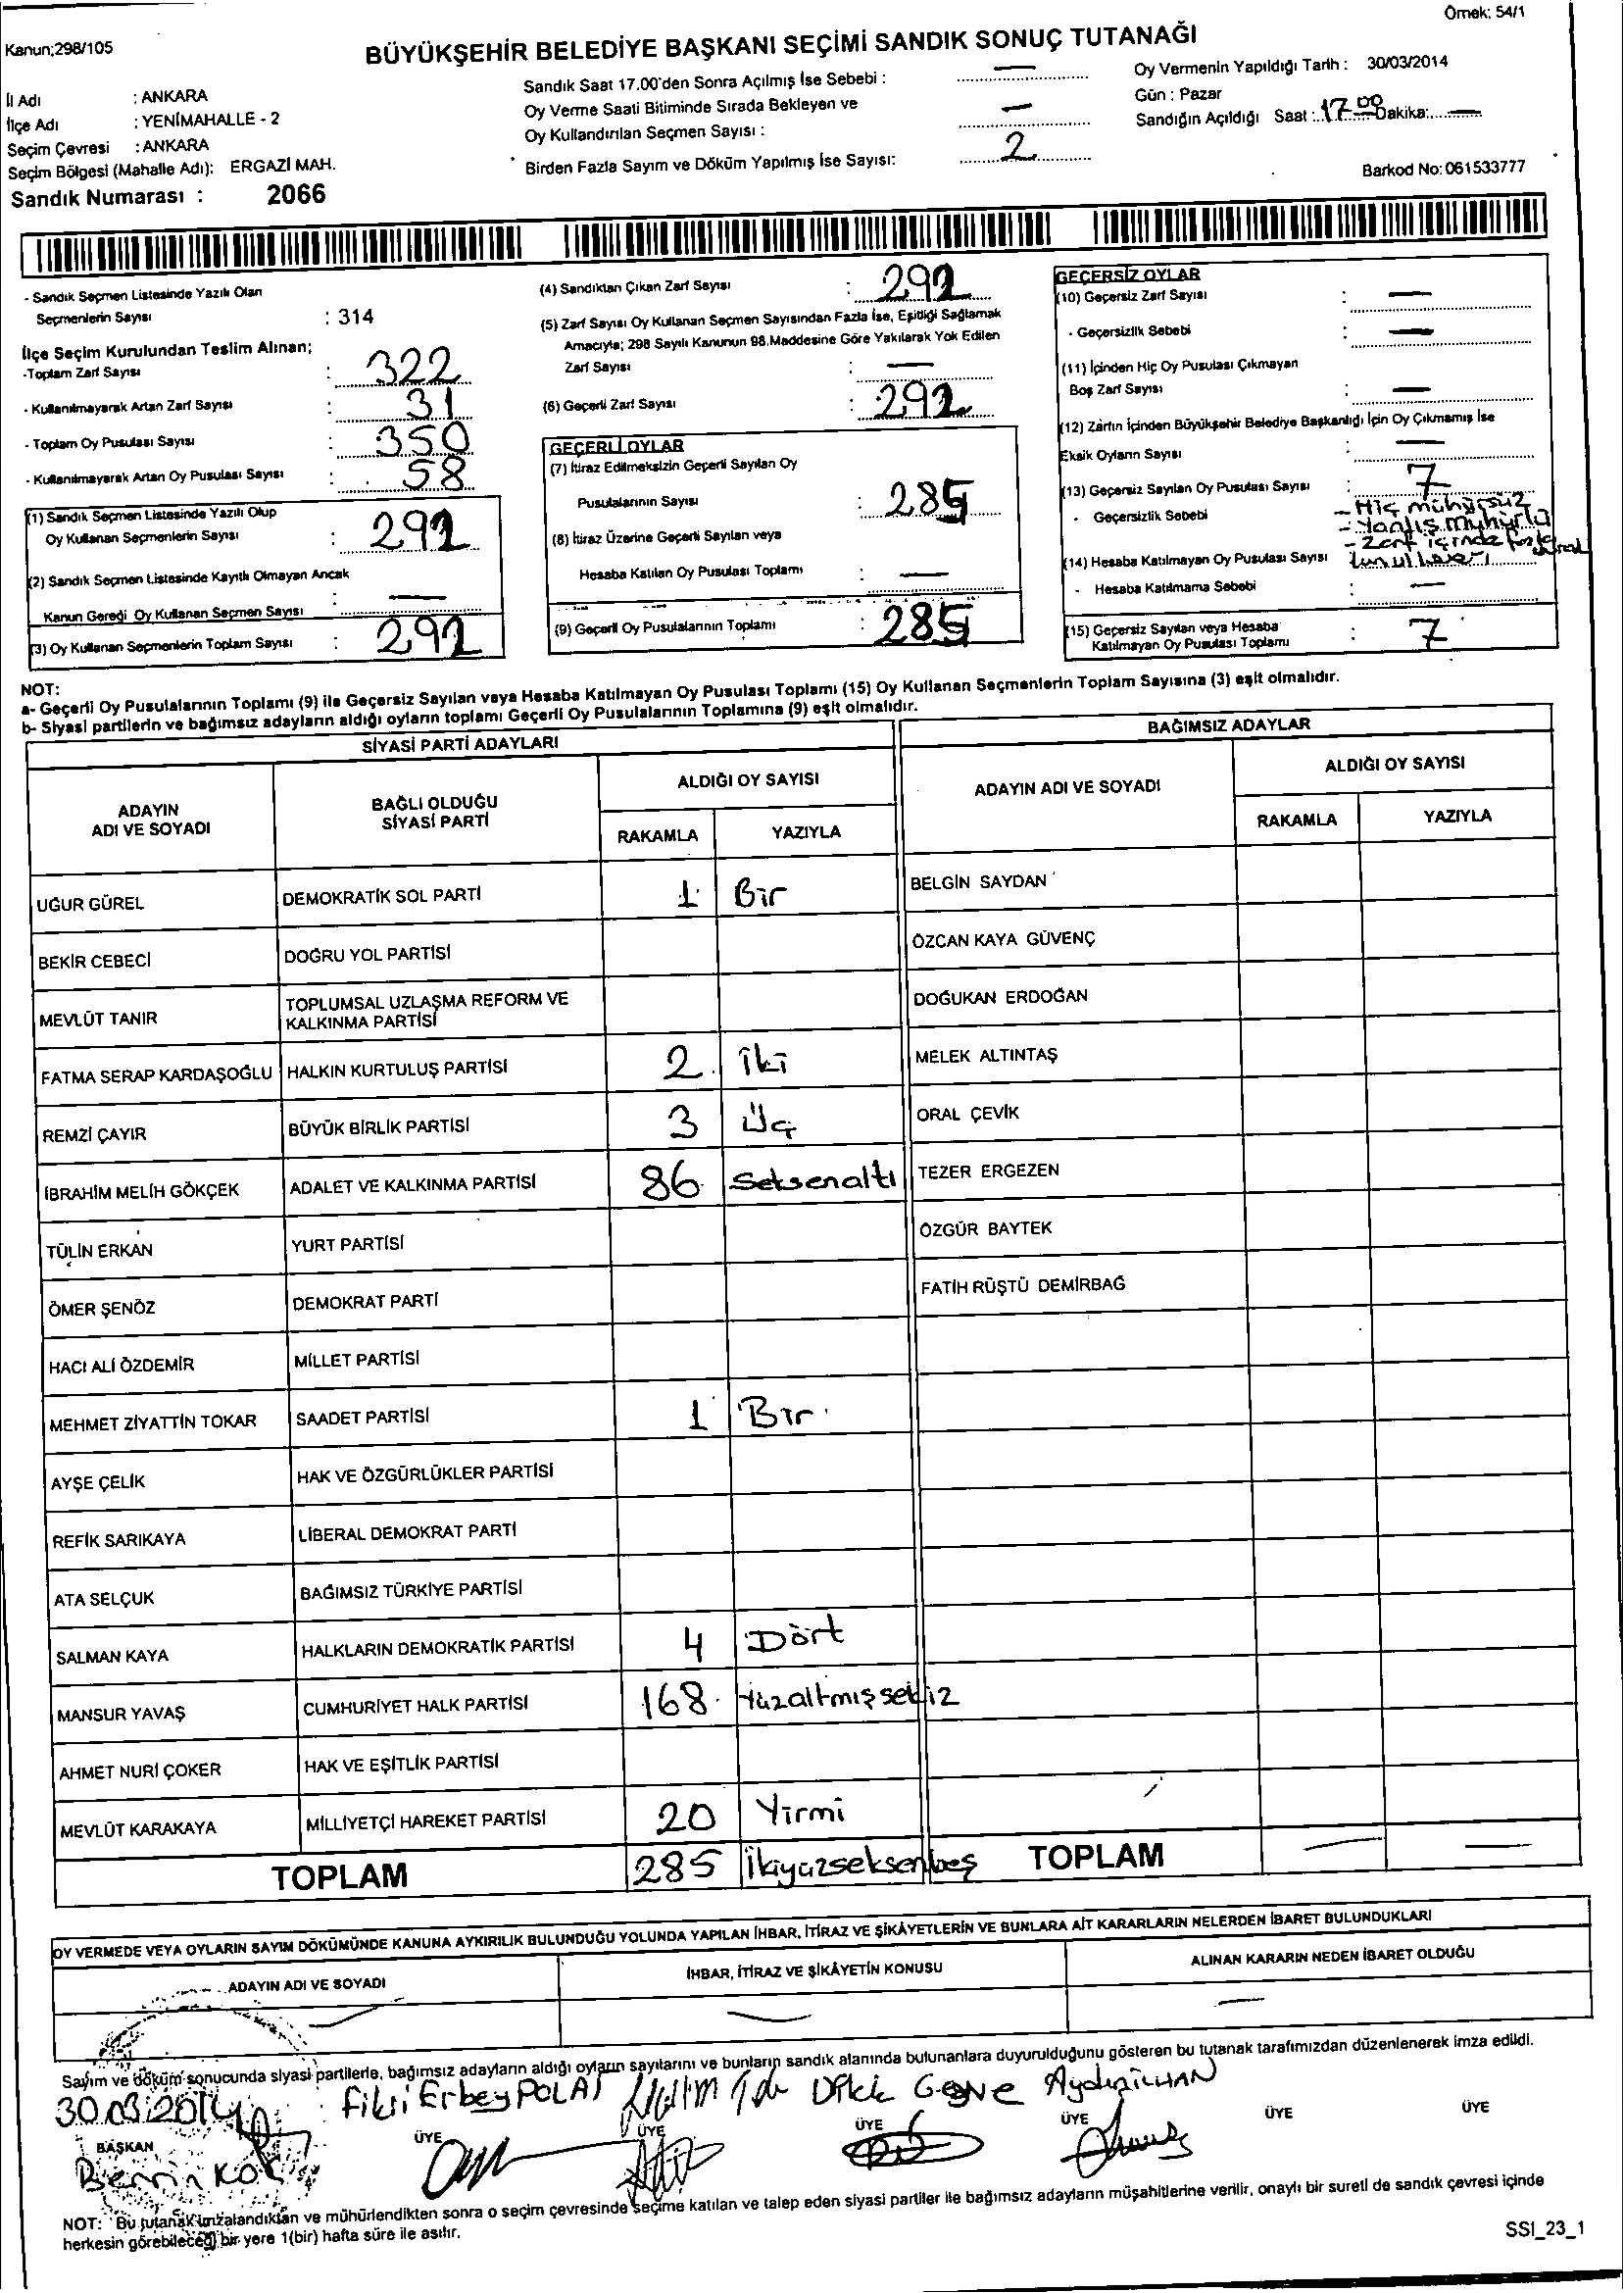 Örnek: 54/1
Kanun;298/105
BÜYÜKŞEHİR BELEDİYE BAŞKANI SEÇİMİ SANDIK SONUÇ TUTANAĞI
İl Adı : ANKARA
İlçe Adı : YENİMAHALLE - 2
Seçim Çevresi : ANKARA
Seçim Bölgesi (Mahalle Adı): ERGAZİ MAH.
Sandık Numarası : 2066
Sandık Saat 17.00'den Sonra Açılmış İse Sebebi : —
Oy Verme Saati Bitiminde Sırada Bekleyen ve
Oy Kullandırılan Seçmen Sayısı : —
Birden Fazla Sayım ve Döküm Yapılmış İse Sayısı: 2
Oy Vermenin Yapıldığı Tarih : 30/03/2014
Gün : Pazar
Sandığın Açıldığı Saat : 17.00 Dakika: —
Barkod No: 061533777
- Sandık Seçmen Listesinde Yazılı Olan
Seçmenlerin Sayısı : 314
İlçe Seçim Kurulundan Teslim Alınan;
-Toplam Zarf Sayısı : 322
- Kullanılmayarak Artan Zarf Sayısı : 31
- Toplam Oy Pusulası Sayısı : 350
- Kullanılmayarak Artan Oy Pusulası Sayısı : 58
(1) Sandık Seçmen Listesinde Yazılı Olup
Oy Kullanan Seçmenlerin Sayısı : 292
(2) Sandık Seçmen Listesinde Kayıtlı Olmayan Ancak
Kanun Gereği Oy Kullanan Seçmen Sayısı : —
(3) Oy Kullanan Seçmenlerin Toplam Sayısı : 292
(4) Sandıktan Çıkan Zarf Sayısı : 292
(5) Zarf Sayısı Oy Kullanan Seçmen Sayısından Fazla İse, Eşitliği Sağlamak
Amacıyla; 298 Sayılı Kanunun 98.Maddesine Göre Yakılarak Yok Edilen
Zarf Sayısı : —
(6) Geçerli Zarf Sayısı : 292
GEÇERLİ OYLAR
(7) İtiraz Edilmeksizin Geçerli Sayılan Oy
Pusulalarının Sayısı : 285
(8) İtiraz Üzerine Geçerli Sayılan veya
Hesaba Katılan Oy Pusulası Toplamı : —
(9) Geçerli Oy Pusulalarının Toplamı : 285
GEÇERSİZ OYLAR
(10) Geçersiz Zarf Sayısı : —
- Geçersizlik Sebebi : —
(11) İçinden Hiç Oy Pusulası Çıkmayan
Boş Zarf Sayısı : —
(12) Zarfın İçinden Büyükşehir Belediye Başkanlığı İçin Oy Çıkmamış İse
Eksik Oyların Sayısı : —
(13) Geçersiz Sayılan Oy Pusulası Sayısı : 7
- Geçersizlik Sebebi : - Hiç mühürsüz
- Yanlış mühürlü
- Zarf içinde fazla
(14) Hesaba Katılmayan Oy Pusulası Sayısı
- Hesaba Katılmama Sebebi : —
(15) Geçersiz Sayılan veya Hesaba
Katılmayan Oy Pusulası Toplamı : 7
NOT:
a- Geçerli Oy Pusulalarının Toplamı (9) ile Geçersiz Sayılan veya Hesaba Katılmayan Oy Pusulası Toplamı (15) Oy Kullanan Seçmenlerin Toplam Sayısına (3) eşit olmalıdır.
b- Siyasi partilerin ve bağımsız adayların aldığı oyların toplamı Geçerli Oy Pusulalarının Toplamına (9) eşit olmalıdır.
SİYASİ PARTİ ADAYLARI
ADAYIN
ADI VE SOYADI
BAĞLI OLDUĞU
SİYASİ PARTİ
ALDIĞI OY SAYISI
RAKAMLA YAZIYLA
UĞUR GÜREL DEMOKRATİK SOL PARTİ 1 Bir
BEKİR CEBECİ DOĞRU YOL PARTİSİ
MEVLÜT TANIR TOPLUMSAL UZLAŞMA REFORM VE
KALKINMA PARTİSİ
FATMA SERAP KARDAŞOĞLU HALKIN KURTULUŞ PARTİSİ 2 İki
REMZİ ÇAYIR BÜYÜK BİRLİK PARTİSİ 3 Üç
İBRAHİM MELİH GÖKÇEK ADALET VE KALKINMA PARTİSİ 86 Seksenaltı
TÜLİN ERKAN YURT PARTİSİ
ÖMER ŞENÖZ DEMOKRAT PARTİ
HACI ALİ ÖZDEMİR MİLLET PARTİSİ
MEHMET ZİYATTİN TOKAR SAADET PARTİSİ 1 Bir
AYŞE ÇELİK HAK VE ÖZGÜRLÜKLER PARTİSİ
REFİK SARIKAYA LİBERAL DEMOKRAT PARTİ
ATA SELÇUK BAĞIMSIZ TÜRKİYE PARTİSİ
SALMAN KAYA HALKLARIN DEMOKRATİK PARTİSİ 4 Dört
MANSUR YAVAŞ CUMHURİYET HALK PARTİSİ 168 Yüzaltmışsekiz
AHMET NURİ ÇOKER HAK VE EŞİTLİK PARTİSİ
MEVLÜT KARAKAYA MİLLİYETÇİ HAREKET PARTİSİ 20 Yirmi
TOPLAM 285 İkiyüzseksenbeş
BAĞIMSIZ ADAYLAR
ADAYIN ADI VE SOYADI
ALDIĞI OY SAYISI
RAKAMLA YAZIYLA
BELGİN SAYDAN
ÖZCAN KAYA GÜVENÇ
DOĞUKAN ERDOĞAN
MELEK ALTINTAŞ
ORAL ÇEVİK
TEZER ERGEZEN
ÖZGÜR BAYTEK
FATİH RÜŞTÜ DEMİRBAĞ
TOPLAM — —
OY VERMEDE VEYA OYLARIN SAYIM DÖKÜMÜNDE KANUNA AYKIRILIK BULUNDUĞU YOLUNDA YAPILAN İHBAR, İTİRAZ VE ŞİKÂYETLERİN VE BUNLARA AİT KARARLARIN NELERDEN İBARET BULUNDUKLARI
ADAYIN ADI VE SOYADI
İHBAR, İTİRAZ VE ŞİKÂYETİN KONUSU
ALINAN KARARIN NEDEN İBARET OLDUĞU
Sayım ve döküm sonucunda siyasi partilerle, bağımsız adayların aldığı oyların sayılarını ve bunların sandık alanında bulunanlara duyurulduğunu gösteren bu tutanak tarafımızdan düzenlenerek imza edildi.
30.03.2014
Fikri Erbey POLAT
BAŞKAN ÜYE ÜYE ÜYE ÜYE ÜYE ÜYE
NOT: Bu tutanak imzalandıktan ve mühürlendikten sonra o seçim çevresinde seçime katılan ve talep eden siyasi partiler ile bağımsız adayların müşahitlerine verilir, onaylı bir sureti de sandık çevresi içinde
herkesin görebileceği bir yere 1(bir) hafta süre ile asılır.
SSI_23_1